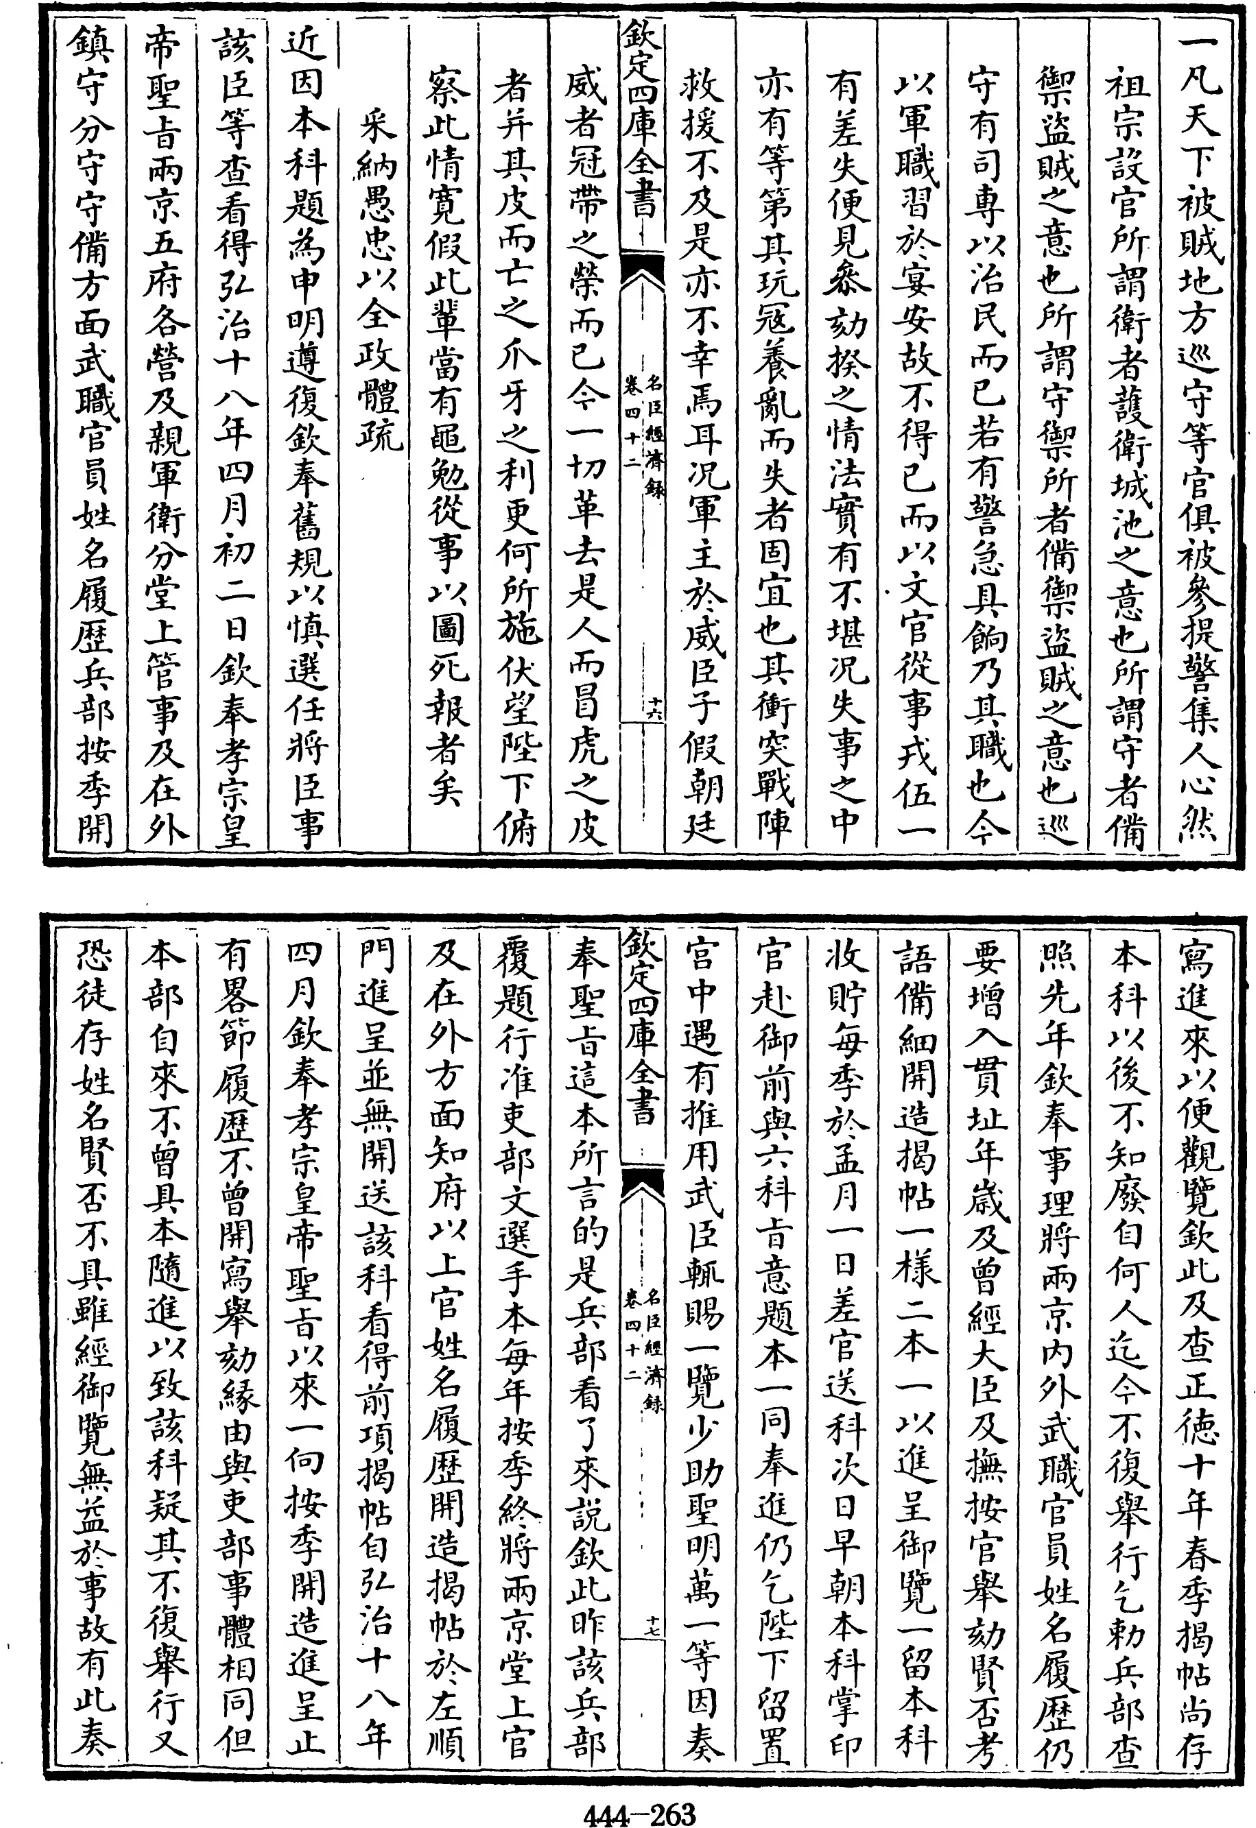 一凡天下被賊地方巡守等官俱被參提警集人心然
祖宗設官所謂衛者護衛城池之意也所謂守者備
禦盜賊之意也所謂守禦所者備禦盜賊之意也巡
守有司專以治民而已若有警急具餉乃其職也今
以軍職習於宴安故不得已而以文官從事戎伍一
有差失便見叅劾揆之情法實有不堪况失事之中
亦有等第其玩寇養亂而失者固宜也其衝突戰陣
救援不及是亦不幸焉耳况軍主於威臣子假朝廷
欽定四庫全書
名臣經濟録
卷四十二
十六
威者冠帶之榮而已今一切革去是人而冒虎之皮
者并其皮而亡之爪牙之利更何所施伏望陛下俯
察此情寛假此輩當有黽勉從事以圖死報者矣
采納愚忠以全政體疏
近因本科題為申明遵復欽奉舊規以慎選任將臣事
該臣等查看得弘治十八年四月初二日欽奉孝宗皇
帝聖旨兩京五府各營及親軍衛分堂上管事及在外
鎮守分守守備方面武職官員姓名履歴兵部按季開
寫進來以便觀覽欽此及查正徳十年春季揭帖尚存
本科以後不知廢自何人迄今不復舉行乞勅兵部查
照先年欽奉事理將兩京内外武職官員姓名履歴仍
要增入貫址年歳及曾經大臣及撫按官舉劾賢否考
語備細開造揭帖一樣二本一以進呈御覽一留本科
收貯每季於孟月一日差官送科次日早朝本科掌印
官赴御前與六科旨意題本一同奉進仍乞陛下留置
宮中遇有推用武臣輒賜一覽少助聖明萬一等因奏
欽定四庫全書
名臣經濟録
卷四十二
十七
奉聖旨這本所言的是兵部看了來説欽此昨該兵部
覆題行准吏部文選手本每年按季終將兩京堂上官
及在外方面知府以上官姓名履歴開造揭帖於左順
門進呈並無開送該科看得前項揭帖自弘治十八年
四月欽奉孝宗皇帝聖旨以來一向按季開造進呈止
有畧節履歴不曾開寫舉劾縁由與吏部事體相同但
本部自來不曾具本隨進以致該科疑其不復舉行又
恐徒存姓名賢否不具雖經御覽無益於事故有此奏
444-263